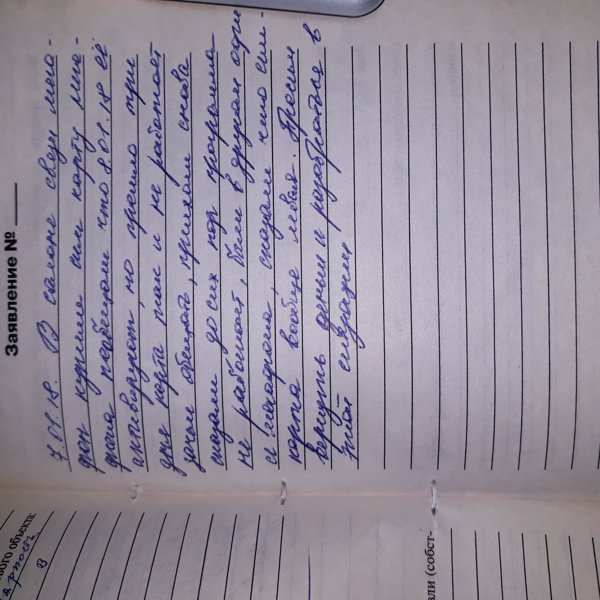 Заявление № ___
7.01.18. В салоне связи мега-
фон купили сим карту мега-
фона пообещали что 8.01.18 её
активируют, но прошло три
дня карта так и не работает
зачем обещать, приехали снова
сказали до сих пор программа
не работает, были в другом офи-
се мегафона, сказали что сим-
карта вообще левая. Просим
вернуть деньги и разобраться в
этой ситуации
вого объекта:
в
ели (собст-